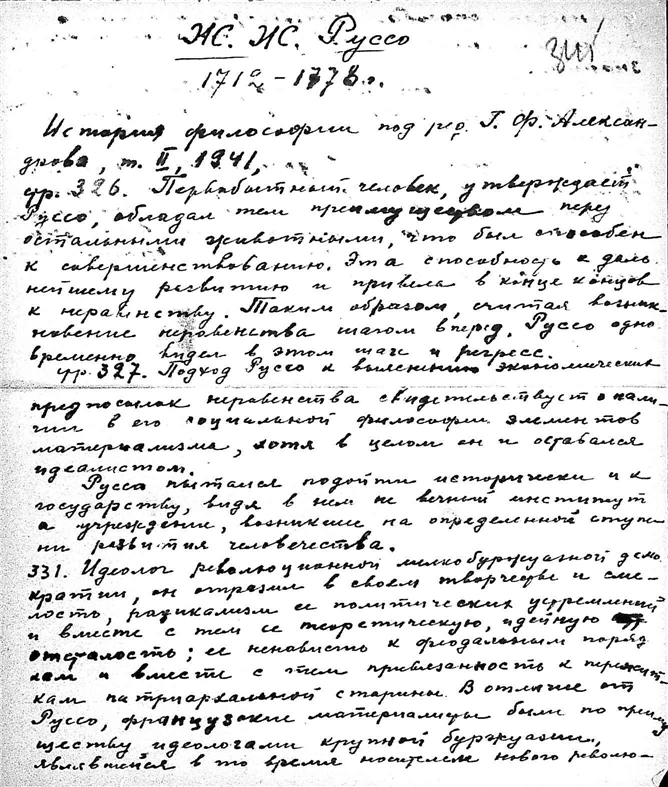 Ж. Ж. Руссо
1712 - 1778 г.
История философии под ред. Г. Ф. Алексан-
дрова, т. II, 1941,
стр. 326. Первобытный человек, утверждает
Руссо, обладал тем преимуществом перед
остальными животными, что был способен
к совершенствованию. Эта способность к даль
нейшему развитию и привела в конце концов
к неравенству. Таким образом, считая возник-
новение неравенства шагом вперед, Руссо одно
временно видел в этом шаге и регресс.
стр. 327. Подход Руссо к выяснению экономических
предпосылок неравенства свидетельствует о нали-
чии в его социальной философии элементов
материализма, хотя в целом он и оставался
идеалистом.
Руссо пытался подойти исторически и к
государству, видя в нем не вечный институт
а учреждение, возникшее на определенной ступе
ни развития человечества.
331. Идеолог революционной мелкобуржуазной демо
кратии, он отразил в своем творчестве и сме-
лость, радикализм ее политических устремлений
и вместе с тем ее теоретическую, идейную
отсталость; ее ненависть к феодальным поряд
кам и вместе с тем привязанность к пережит-
кам патриархальной старины. В отличие от
Руссо, французские материалисты были по преиму
ществу идеологами крупной буржуазии,
являвшейся в то время носителем нового револю-